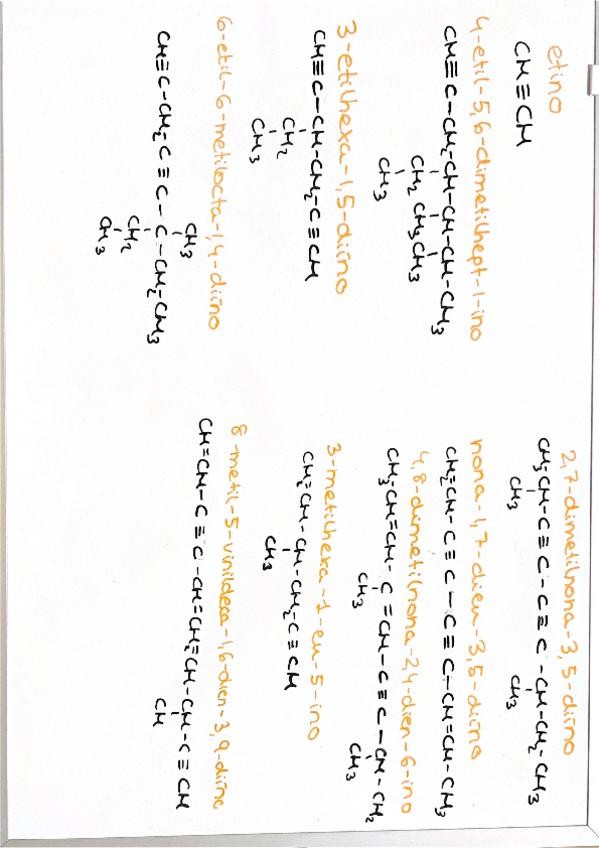 etino
CH≡CH
4-etil-5,6-dimetilhept-1-ino
CH≡C-CH₂-CH-CH-CH-CH₃
CH₂ CH₃ CH₃
CH₃
3-etilhexa-1,5-diino
CH≡C-CH-CH₂-C≡CH
CH₂
CH₃
6-etil-6-metilocta-1,4-diino
CH₃
CH≡C-CH₂-C≡C-C-CH₂CH₃
CH₂
CH₃
2,7-dimetilnona-3,5-diino
CH₃CH-C≡C-C≡C-CH-CH₂-CH₃
CH₃ CH₃
nona-1,7-dien-3,5-diino
CH₂=CH-C≡C-C≡C-CH=CH-CH₃
4,8-dimetilnona-2,4-dien-6-ino
CH₃CH=CH-C=CH-C≡C-CH-CH₂
CH₃ CH₃
3-metilhexa-1-en-5-ino
CH₂=CH-CH-CH₂-C≡CH
CH₃
8-metil-5-vinildeca-1,6-dien-3,9-diino
CH=CH-C≡C-CH=CH=CH-CH-C≡CH
CH